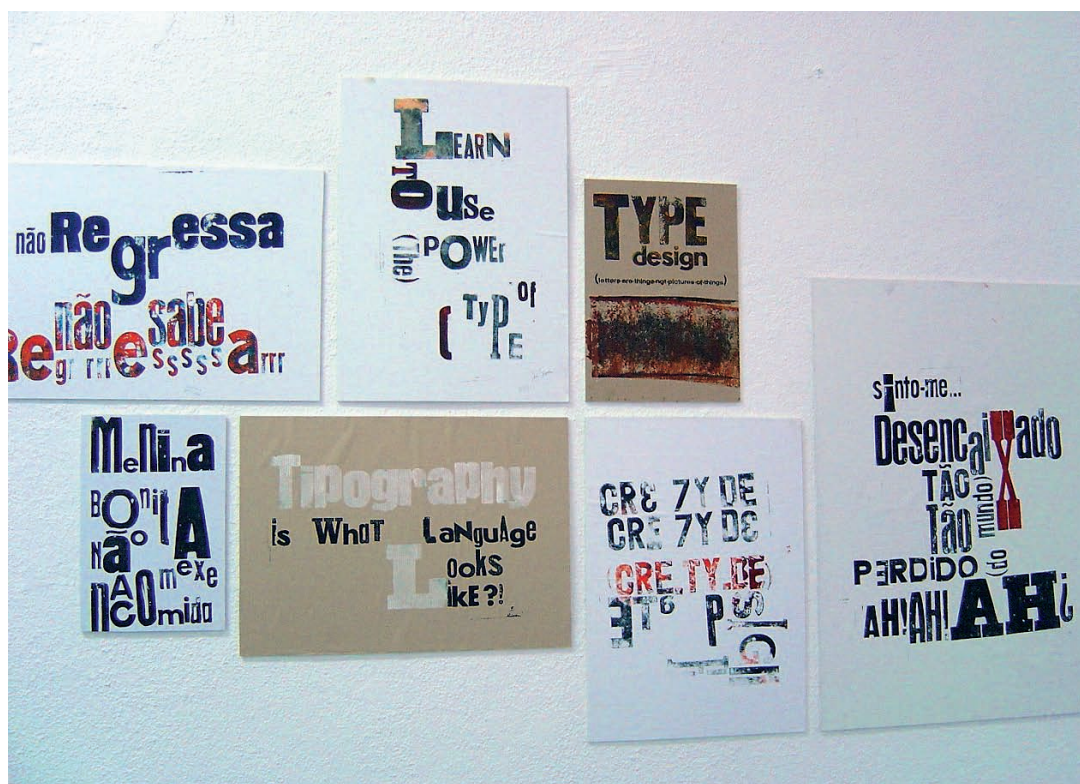 não Regressa
não sabe
Regr rrr e sssss a rrr
LEARN
TO USe
(The) POWEr
Of
( TyPE
TYPE
design
(letters are things not pictures of things)
MeNina
BOniTA
Não
mexe
nA COmida
Tipography
is WhaT LanguAge
Looks
likE?!
CRE 7Y DE
CRE 7Y DE
(CRE.TY.DE)
sinto-me...
DesencaiXado
TÃO
Tão
PERDiDO (do mundo)
AH!AH!AH!